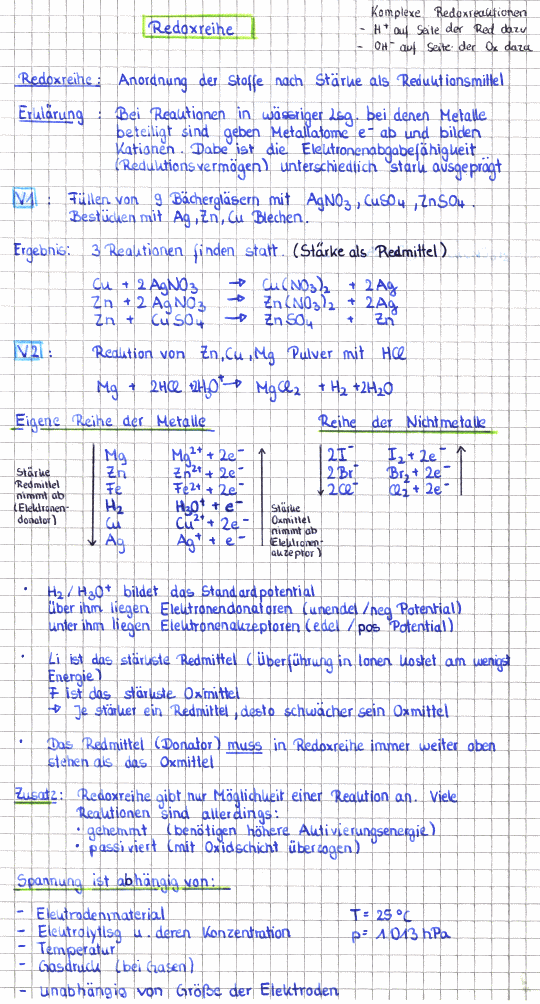 Komplexe Redoxreaktionen
- H⁺ auf Seite der Red dazu
- OH⁻ auf Seite der Ox dazu
Redoxreihe
Redoxreihe: Anordnung der Stoffe nach Stärke als Reduktionsmittel
Erklärung: Bei Reaktionen in wässriger Lsg. bei denen Metalle
beteiligt sind geben Metallatome e⁻ ab und bilden
Kationen. Dabe ist die Elektronenabgabefähigkeit
(Reduktionsvermögen) unterschiedlich stark ausgeprägt
V1: Füllen von 9 Bächergläsern mit AgNO₃, CuSO₄, ZnSO₄.
Bestücken mit Ag, Zn, Cu Blechen.
Ergebnis: 3 Reaktionen finden statt. (Stärke als Redmittel)
Cu + 2 AgNO₃ → Cu(NO₃)₂ + 2Ag
Zn + 2 AgNO₃ → Zn(NO₃)₂ + 2Ag
Zn + CuSO₄ → ZnSO₄ + Zn
V2: Reaktion von Zn, Cu, Mg Pulver mit HCl
Mg + 2HCl + 2H₂O⁺ → MgCl₂ + H₂ + 2H₂O
Eigene Reihe der Metalle
Stärke
Redmittel
nimmt ab
(Elektronen-
donator)
Mg Mg²⁺ + 2e⁻
Zn Zn²⁺ + 2e⁻
Fe Fe²⁺ + 2e⁻
H₂ H₃O⁺ + e⁻
Cu Cu²⁺ + 2e⁻
Ag Ag⁺ + e⁻
Stärke
Oxmittel
nimmt ab
(Elektronen-
akzeptor)
Reihe der Nichtmetalle
2I⁻ I₂ + 2e⁻
2Br⁻ Br₂ + 2e⁻
2Cl⁻ Cl₂ + 2e⁻
· H₂/H₃O⁺ bildet das Standardpotential
über ihm liegen Elektronendonatoren (unendel/neg Potential)
unter ihm liegen Elektronenakzeptoren (edel/pos Potential)
· Li ist das stärkste Redmittel (Überführung in Ionen kostet am wenigst
Energie)
F ist das stärkste Oxmittel
→ Je stärker ein Redmittel, desto schwächer sein Oxmittel
· Das Redmittel (Donator) muss in Redoxreihe immer weiter oben
stehen als das Oxmittel
Zusatz: Redoxreihe gibt nur Möglichkeit einer Reaktion an. Viele
Reaktionen sind allerdings:
· gehemmt (benötigen höhere Aktivierungsenergie)
· passiviert (mit Oxidschicht überzogen)
Spannung ist abhängig von:
- Elektrodenmaterial
- Elektrolytlsg u. deren Konzentration
- Temperatur
- Gasdruck (bei Gasen)
- unabhängig von Größe der Elektroden
T = 25 °C
p = 1 013 hPa